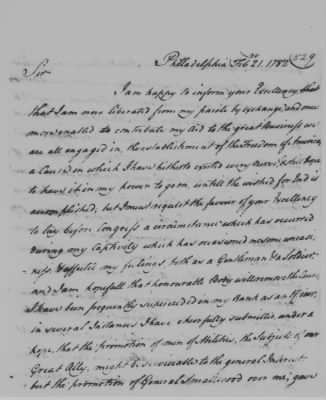 Philadelphia Feb.ry 21. 1782 (529
Sir
I am happy to inform your Excellency, that
that I am now liberated from my parole by exchange, and once
more enabled to contribute my Aid to the great Business we
are all engaged in, the establishment of the Freedom of America,
a Cause in which I have hitherto exerted every Nerve, & still hope
to have it in my power to go on, untill the wished for End is
accomplished, but I must request the favour of your Excellency
to lay before Congress a circumstance which has occurred
during my Captivity which has occasioned me some uneasi-
-ness & affected my feelings both as a Gentleman & a Soldier,
and I am hopefull that honourable Body will remove the Cause,
I have been frequently superceeded in my Rank as an officer,
in several Instances I have chearfully submitted, under a
hope, that the promotion of men of Abilities, the Subjects of our
Great Ally, might be serviceable to the general Interest
but the promotion of General Smallwood over me, gave